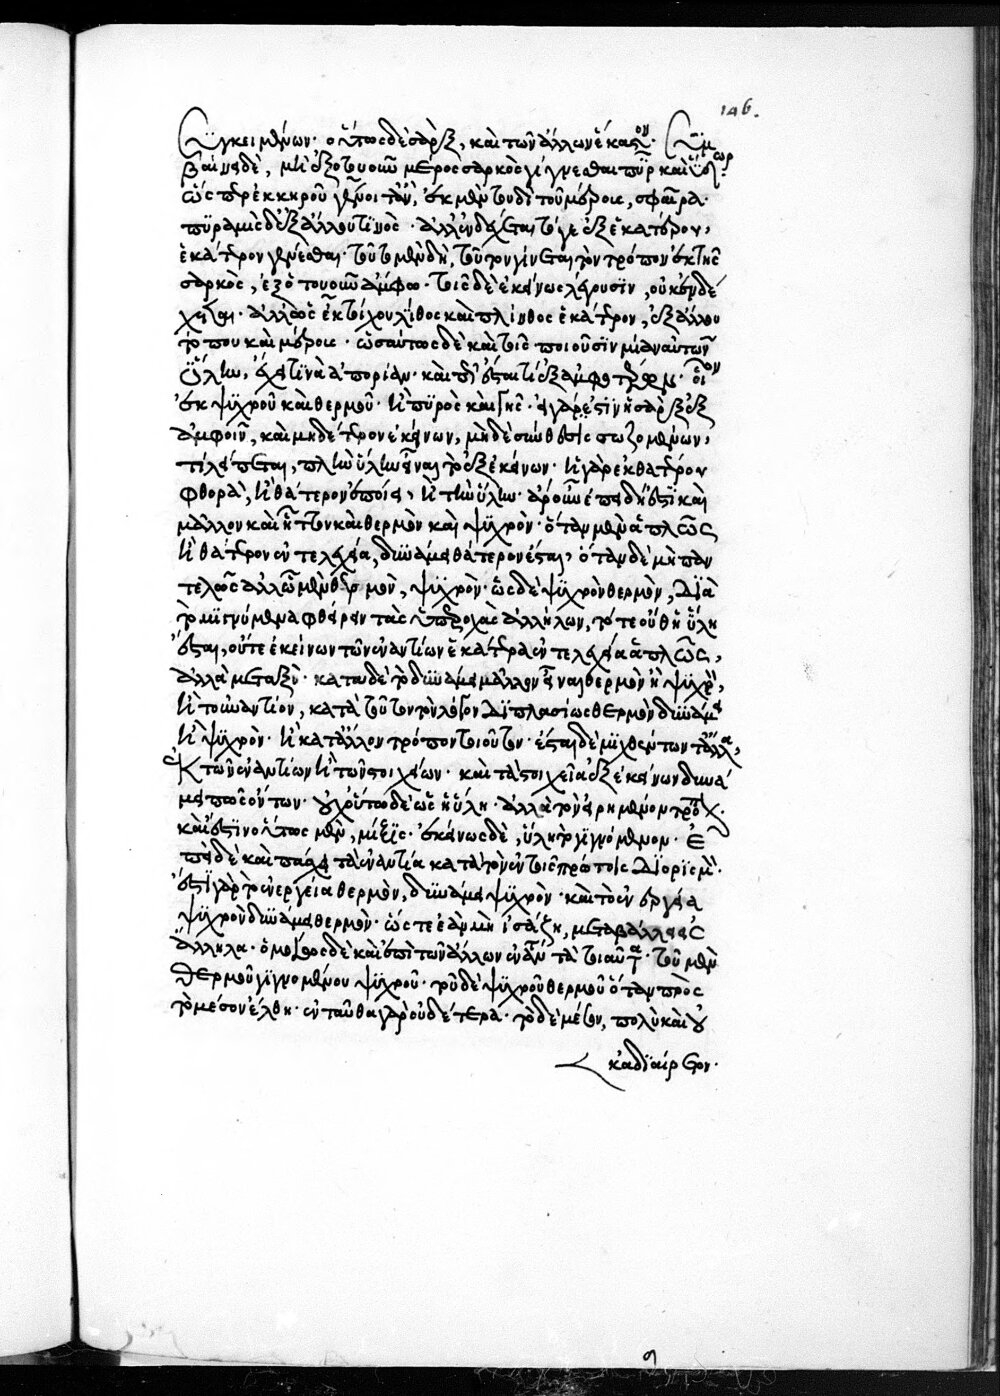 Συγκειμένων· οὕτως δὲ σὰρξ, καὶ τῶν ἄλλων ἕκαστον· Συμ
βαίνει δὲ, μὴ ἐξ ὁτουοῦν μέρος σαρκὸς γίγνεσθαι πῦρ καὶ ὕδωρ·
ὥσπερ ἐκ κηροῦ γένοιτ' ἂν, ἐκ μὲν τουδὶ τοῦ μέρους, σφαῖρα·
πϋραμὶς δ' ἐξ ἄλλου τινὸς· ἀλλ' ἐνδέχεται τό γε ἐξ ἑκατέρου,
ἑκάτερον γενέσθαι· τοῦτο μὲν δὴ, τοῦτον γίνεται τὸν τρόπον ἐκ τῆς
σαρκὸς, ἐξ ὁτουοῦν ἄμφω· τοῖς δὲ ἐκείνως λέγουσϊν, οὐκ ἐνδέ
χεται· ἀλλ' ὡς ἐκ τοίχου λίθος καὶ πλίνθος ἑκάτερον, ἐξ ἄλλου
τόπου καὶ μέρους· ὡσαύτως δὲ καὶ τοῖς ποιοῦσϊν μίαν αὐτῶν
ὕλην, ἔχει τϊνὰ ἀπορίαν· καὶ πῶς ἔσται τὶ ἐξ ἀμφοτέρων· οἷον
ἐκ ψϋχροῦ καὶ θερμοῦ· ἢ πϋρὸς καὶ γῆς· εἰ γάρ ἐστϊν ἡ σὰρξ ἐξ
ἀμφοῖν, καὶ μηδέτερον ἐκείνων, μηδὲ σύνθεσις σωζομένων,
τί λείπεται, πλὴν ὕλην εἶναι τὸ ἐξ ἐκείνων· ἢ γὰρ ἑκατέρου
φθορὰ, ἢ θάτερον ποιεῖ, ἢ τὴν ὕλην· ἆρ' οὖν ἐπειδή ἐστϊ καὶ
μᾶλλον καὶ ἧττον καὶ θερμὸν καὶ ψϋχρὸν· ὅταν μὲν ἁπλῶς
ἢ θάτερον ἐντελεχεία, δυνάμει θάτερον ἔσται· ὅταν δὲ μὴ παν
τελῶς ἀλλ' ὡς μὲν θερμὸν, ψϋχρὸν· ὡς δὲ ψϋχρὸν θερμὸν, διὰ
τὸ μϊγνύμενα φθείρειν τὰς ὑπεροχὰς ἀλλήλων, τότε οὔθ' ἡ ὕλη
ἔσται, οὔτε ἐκείνων τῶν ἐναντίων ἑκάτερα ἐντελεχεία ἁπλῶς,
ἀλλὰ μεταξὺ· κατὰ δὲ τὸ δυνάμει μᾶλλον εἶναι θερμὸν ἢ ψϋχρὸν,
ἢ τοὐναντίον, κατὰ τοῦτον τὸν λόγον διπλασίως θερμὸν δυνάμει
ἢ ψϋχρὸν· ἢ κατ' ἄλλον τρόπον τοιοῦτον· ἔσται δὲ μϊχθέντων τἄλλα,
ἐκ τῶν ἐναντίων ἢ τῶν στοιχείων· καὶ τὰ στοιχεῖα ἐξ ἐκείνων δυνά
μει πως ὄντων· οὐχ οὕτω δὲ ὡς ἡ ὕλη· ἀλλὰ τὸν εἰρημένον τρόπον·
καὶ ἐστϊν οὕτως μὲν, μίξϊς· ἐκείνως δὲ, ὕλη τὸ γϊγνόμενον· ἐ
πεὶ δὲ καὶ πάσχει τὰ ἐναντία κατὰ τὸν ἐν τοῖς πρώτοις διορϊσμὸν·
ἔστϊ γὰρ τὸ ἐνεργεία θερμὸν, δυνάμει ψϋχρὸν· καὶ τὸ ἐνεργεία
ψϋχρὸν δυνάμει θερμὸν· ὥστε ἐὰν μὴ ἰσάζη, μεταβάλλει εἰς
ἄλληλα· ὁμοίως δὲ καὶ ἐπὶ τῶν ἄλλων ἐναντίων τὰ τοιαῦτα· τοῦ μὲν
θερμοῦ γϊγνομένου ψϋχροῦ· τοῦ δὲ ψϋχροῦ θερμοῦ ὅταν πρὸς
τὸ μέσον ἔλθη· ἐνταῦθα γὰρ οὐδέτερα· τὸ δὲ μέσον, πολὺ καὶ οὐ
κ ἀδϊαίρετον·